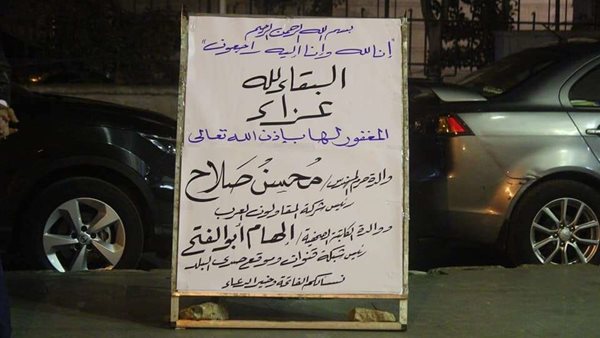 بسم الله الرحمن الرحيم
"إنا لله وإنا إليه راجعون"
البقاء لله
عزاء
المغفور لها بإذن الله تعالى
والدة حرم المهندس/ محسن صلاح
رئيس شركة المقاولون العرب
ووالدة الكاتبة الصحفية/ إلهام أبوالفتح
رئيس شبكة قنوات وموقع صدى البلد
نسألكم الفاتحة وخير الدعاء